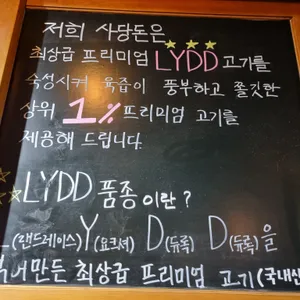 저희 사당돈은
최상급 프리미엄 LYDD 고기를
숙성시켜 육즙이 풍부하고 쫄깃한
상위 1% 프리미엄 고기를
제공해 드립니다.
LYDD 품종이란?
(랜드레이스) Y(요크셔) D(듀록) D(듀록)을
최상급 프리미엄 고기 (국내산